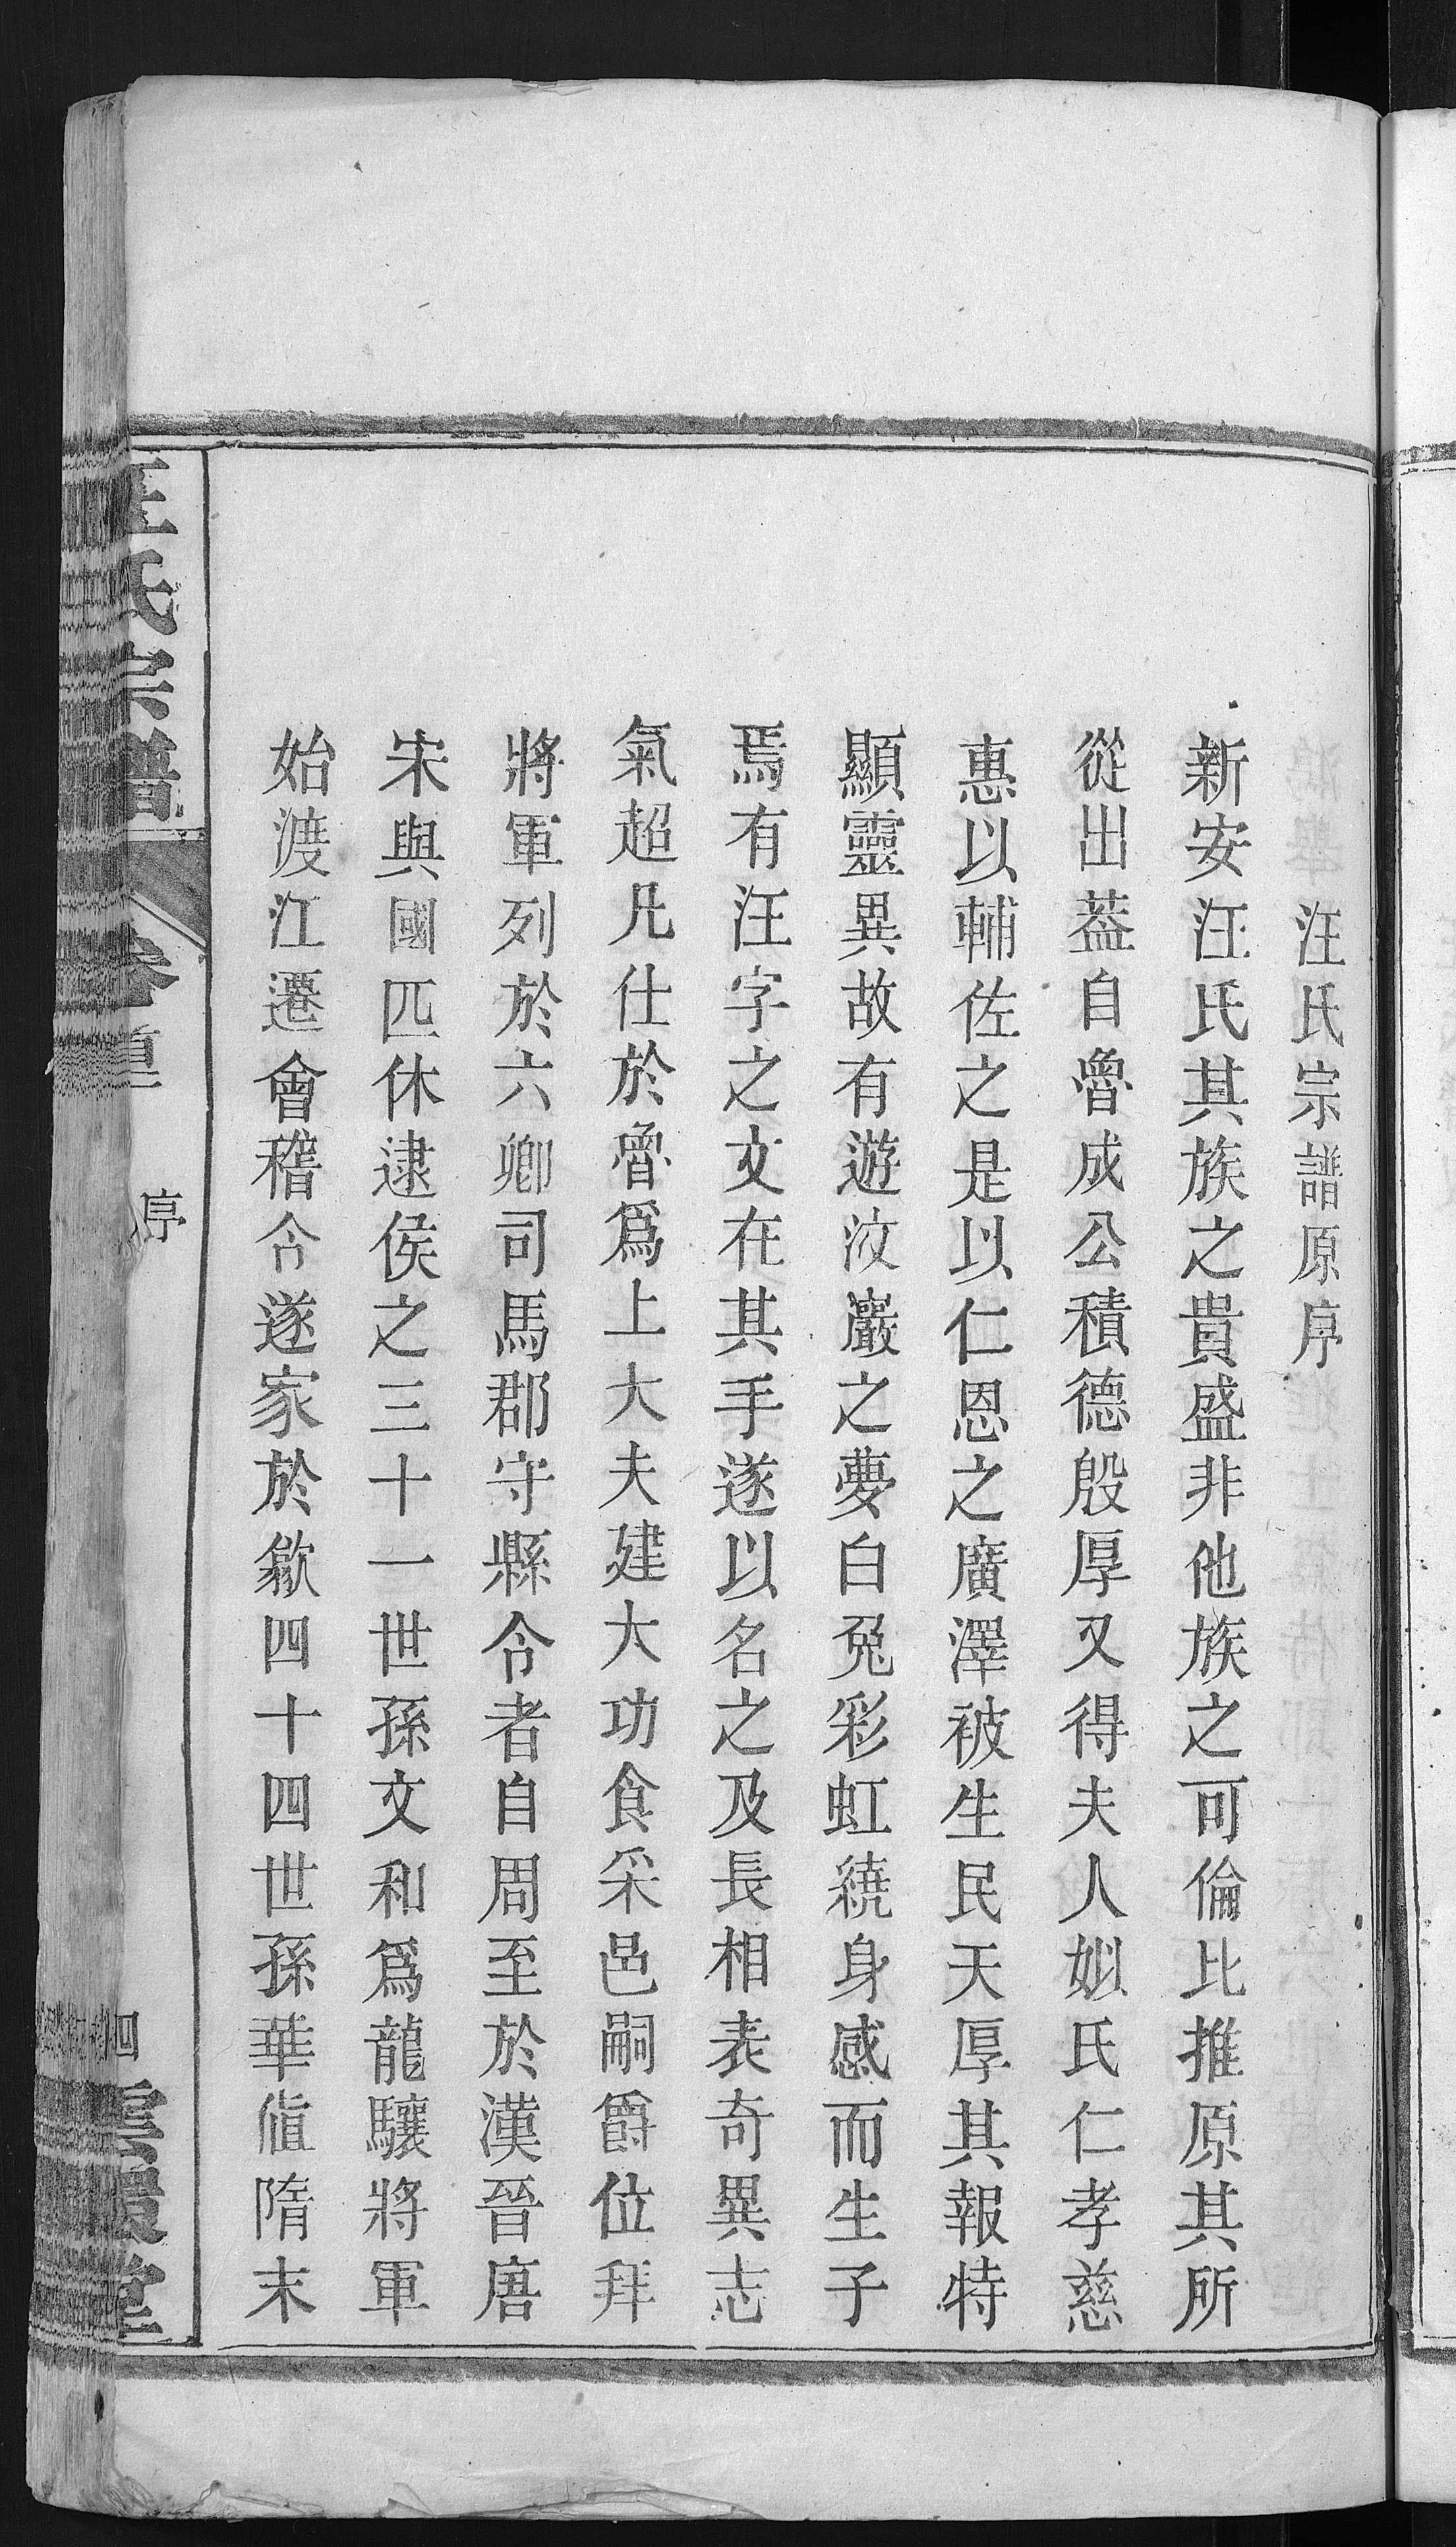 汪氏宗譜原序
新安汪氏其族之貴盛非他族之可倫比推原其所
從出葢自魯成公積德殷厚又得夫人姒氏仁孝慈
惠以輔佐之是以仁恩之廣澤被生民天厚其報特
顯靈異故有遊汶巖之夢白兎彩虹繞身感而生子
焉有汪字之文在其手遂以名之及長相表奇異志
氣超凡仕於魯爲上大夫建大功食采邑嗣爵位拜
將軍列於六卿司馬郡守縣令者自周至於漢晉唐
宋與國匹休逮侯之三十一世孫文和爲龍驤將軍
始渡江遷會稽令遂家於歙四十四世孫華値隋末
汪氏宗譜
卷首
序
四